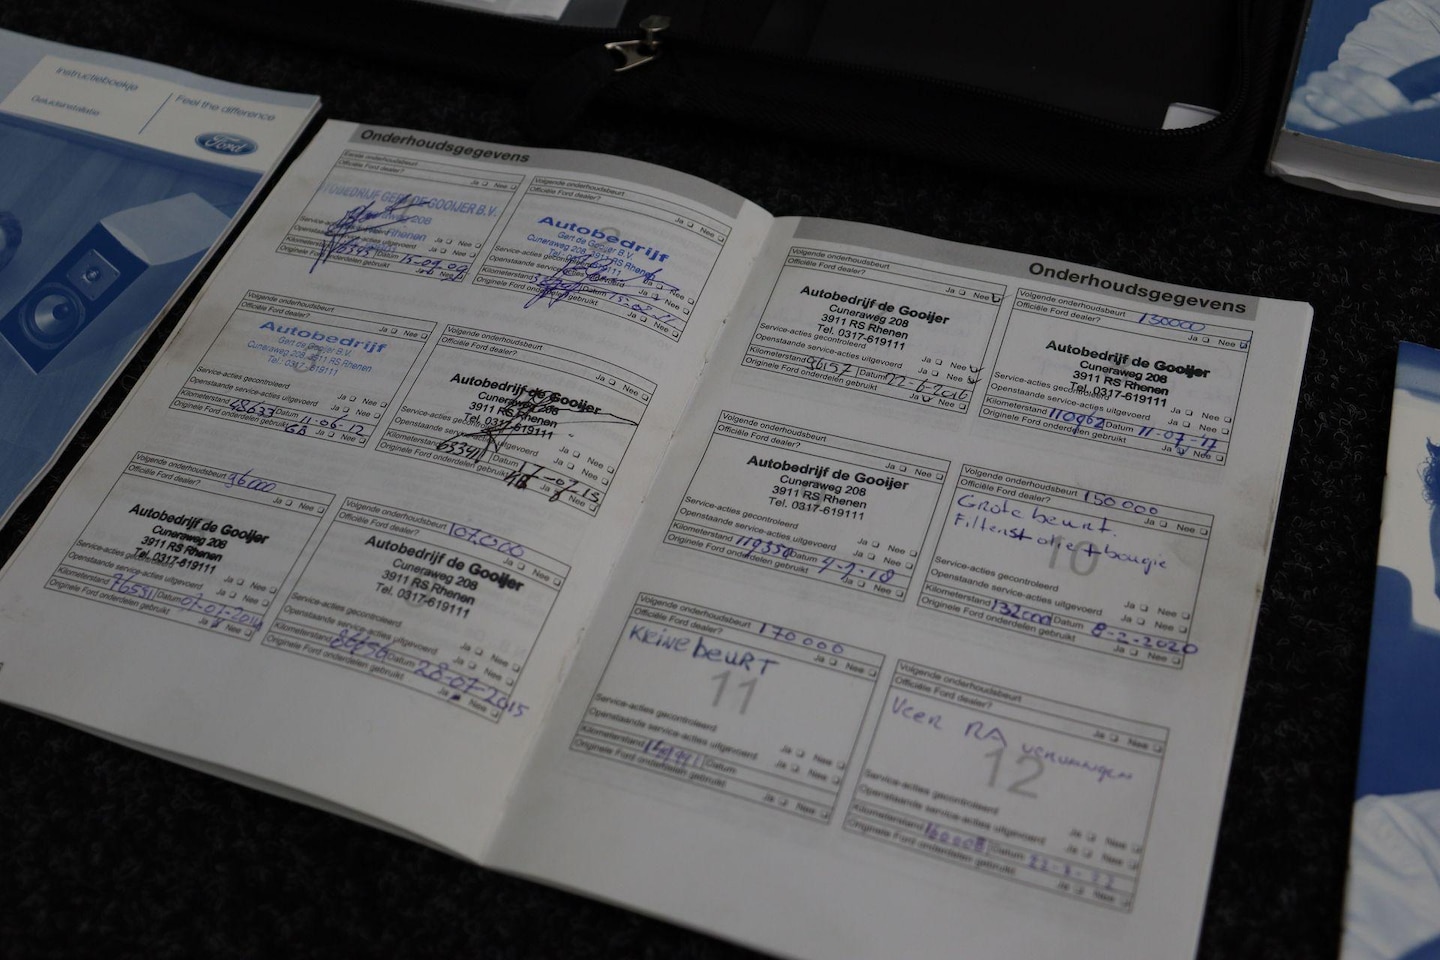 Instructieboekje
Geluidsinstallatie
Feel the difference
Ford
Onderhoudsgegevens
Eerste onderhoudsbeurt
Officiële Ford dealer?
Ja Nee
GERT DE GOOIJER B.V.
208
Rhenen
Ja Nee
Ja Nee
Kilometerstand Datum 15-09-09
Originele Ford onderdelen gebruikt Ja Nee
Volgende onderhoudsbeurt
Officiële Ford dealer?
Ja Nee
Autobedrijf
Gert de Gooijer B.V.
Cuneraweg 208, 3911 RS Rhenen
Kilometerstand Datum
Originele Ford onderdelen gebruikt Ja Nee
Volgende onderhoudsbeurt
Officiële Ford dealer?
Ja Nee
Autobedrijf
Gert de Gooijer B.V.
Cuneraweg 208, 3911 RS Rhenen
Tel.: 0317-619111
Service-acties gecontroleerd Ja Nee
Openstaande service-acties uitgevoerd Ja Nee
Kilometerstand 48633 Datum 11-06-12
Originele Ford onderdelen gebruikt Ja Nee
Volgende onderhoudsbeurt
Officiële Ford dealer?
Ja Nee
Autobedrijf de Gooijer
Cuneraweg 208
3911 RS Rhenen
Tel. 0317-619111
Kilometerstand 65341 Datum
Originele Ford onderdelen gebruikt Ja Nee
Volgende onderhoudsbeurt 96000
Officiële Ford dealer?
Ja Nee
Autobedrijf de Gooijer
Cuneraweg 208
3911 RS Rhenen
Tel. 0317-619111
Service-acties gecontroleerd Ja Nee
Openstaande service-acties uitgevoerd Ja Nee
Kilometerstand Datum
Originele Ford onderdelen gebruikt Ja Nee
Volgende onderhoudsbeurt 107.000
Officiële Ford dealer?
Ja Nee
Autobedrijf de Gooijer
Cuneraweg 208
3911 RS Rhenen
Tel. 0317-619111
Service-acties gecontroleerd Ja Nee
Openstaande service-acties uitgevoerd Ja Nee
Kilometerstand Datum 28-07-2015
Originele Ford onderdelen gebruikt Ja Nee
Onderhoudsgegevens
Volgende onderhoudsbeurt
Officiële Ford dealer?
Ja Nee
Autobedrijf de Gooijer
Cuneraweg 208
3911 RS Rhenen
Tel. 0317-619111
Service-acties gecontroleerd Ja Nee
Openstaande service-acties uitgevoerd Ja Nee
Kilometerstand 96157 Datum 22-6-2016
Originele Ford onderdelen gebruikt Ja Nee
Volgende onderhoudsbeurt 130000
Officiële Ford dealer?
Ja Nee
Autobedrijf de Gooijer
Cuneraweg 208
3911 RS Rhenen
Tel. 0317-619111
Service-acties gecontroleerd Ja Nee
Openstaande service-acties uitgevoerd Ja Nee
Kilometerstand 110962 Datum 11-07-17
Originele Ford onderdelen gebruikt Ja Nee
Volgende onderhoudsbeurt
Officiële Ford dealer?
Ja Nee
Autobedrijf de Gooijer
Cuneraweg 208
3911 RS Rhenen
Tel. 0317-619111
Service-acties gecontroleerd Ja Nee
Openstaande service-acties uitgevoerd Ja Nee
Kilometerstand 119350 Datum 4-7-18
Originele Ford onderdelen gebruikt Ja Nee
Volgende onderhoudsbeurt 150 000
Officiële Ford dealer?
Ja Nee
Grote beurt.
Filters olie + bougie
10
Service-acties gecontroleerd Ja Nee
Openstaande service-acties uitgevoerd Ja Nee
Kilometerstand 132000 Datum 8-2-2020
Originele Ford onderdelen gebruikt Ja Nee
Volgende onderhoudsbeurt 170 000
Officiële Ford dealer?
Ja Nee
Kleine beurt
11
Service-acties gecontroleerd Ja Nee
Openstaande service-acties uitgevoerd Ja Nee
Kilometerstand Datum
Originele Ford onderdelen gebruikt Ja Nee
Volgende onderhoudsbeurt
Officiële Ford dealer?
Ja Nee
Veer RA vervangen
12
Service-acties gecontroleerd Ja Nee
Openstaande service-acties uitgevoerd Ja Nee
Kilometerstand Datum
Originele Ford onderdelen gebruikt Ja Nee